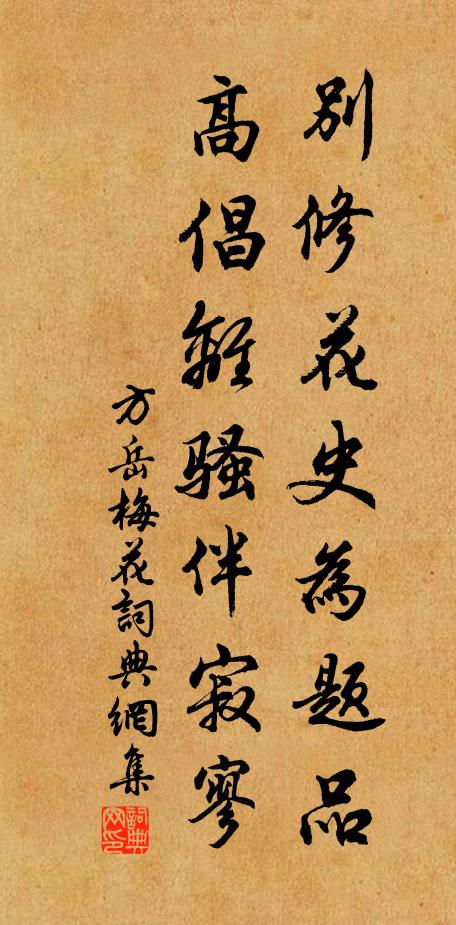 別修花史為题品
高倡離騷伴寂寥
方岳梅花詞典網集
詞典网印